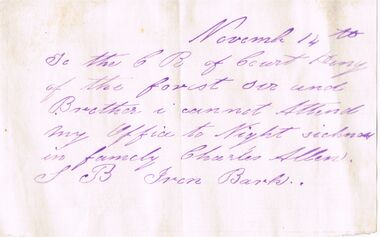 Novemb 14th
To the C R of Court King
of the forist Sir and
Brother i cannot Attend
my Office to Night sickness
in famely Charles Allen.
S B Iron Bark..